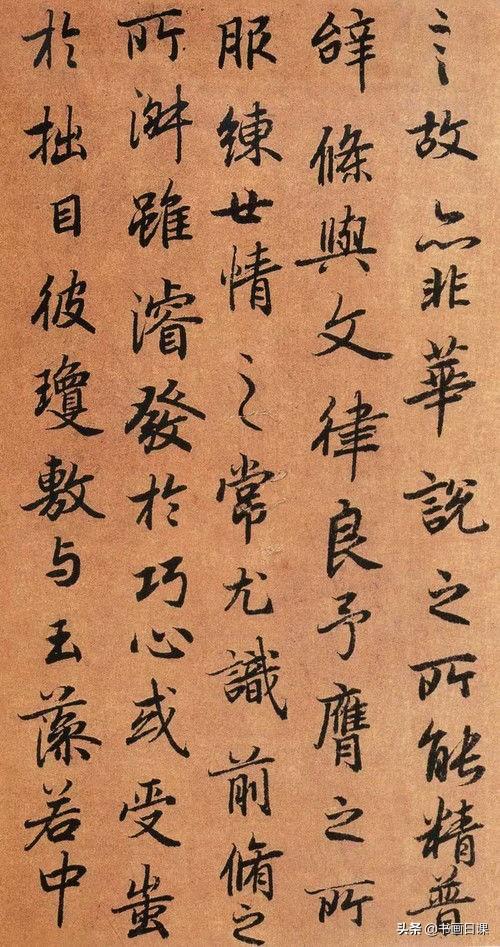 言故亦非華說之所能精普
辝條與文律良予膺之所
服練世情之常尤識前脩之
所淑雖濬發於巧心或受蚩
於拙目彼瓊敷与玉藻若中
头条 @书画日课